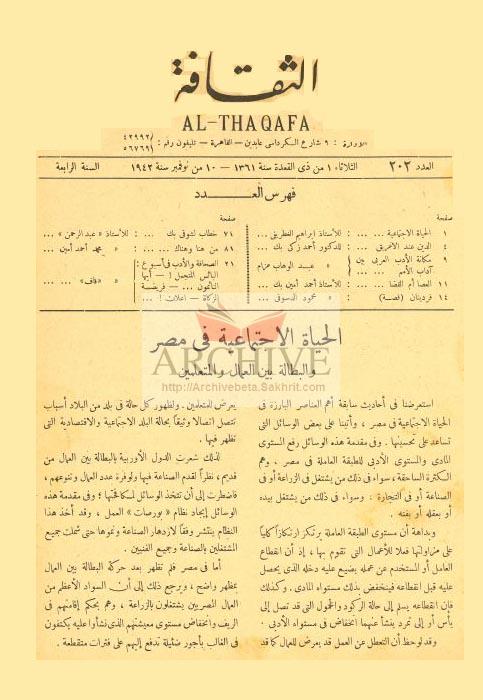 الثقافة
AL-THAQAFA
الادارة : ٩ شارع الكرداسى عابدين — القاهرة — تليفون رقم : ٤٢٩٩٢ / ٥٦٧٦٩
العدد ٢٠٢
الثلاثاء ١ من ذى القعدة سنة ١٣٦١ — ١٠ من نوفمبر سنة ١٩٤٢
السنة الرابعة
فهرس العدد
صفحة
١ الحياة الاجتماعية ... ... : للأستاذ إبراهيم الغطريفى ...
٤ الدين عند الاغريق ... : للدكتور أحمد زكى بك ...
٩ مكانة الأدب العربى بين آداب الأمم ... ... » عبد الوهاب عزام
١١ العصا أم القضا ... ... : للأستاذ أحمد أمين بك ...
١٤ فردينان (قصة) ... : » محمود الدسوقى ...
صفحة
٧١ خطاب لشوقى بك ... : للأستاذ « عبد الرحمن » ...
٨٨ من هنا وهناك ... ... : » محمد أحمد أمين ...
٢١ الصحافة والأدب فى أسبوع :
البائس المتجمل ! — أيها
النائمون ... — فريضة
الزكاة — اعلانات ! ...
» « قاف » ...
الحياة الاجتماعية فى مصر
والبطالة بين العمال والمتعلمين
ARCHIVE
http://Archivebeta.Sakhrit.com
استعرضنا فى أحاديث سابقة أهم العناصر البارزة فى
الحياة الاجتماعية فى مصر ، وأتينا على بعض الوسائل التى
تساعد على تحسينها . وفى مقدمة هذه الوسائل رفع المستوى
المادى والمستوى الأدبى للطبقة العاملة فى مصر ، وهم
الكثرة الساحقة ، سواء فى ذلك من يشتغل فى الزراعة أو فى
الصناعة أو فى التجارة : وسواء فى ذلك من يشتغل بيده
أو بعقله أو بفنه .
وبداهة أن مستوى الطبقة العاملة يرتكز ارتكازاً كلياً
على مزاولتها فعلا للأعمال التى تقوم بها ، إذ أن انقطاع
العامل أو المستخدم عن عمله يضيع عليه دخله الذى يحصل
عليه قبل انقطاعه فينخفض بذلك مستواه المادى . وكذلك
فإن انقطاعه يسلم إلى حالة الركود والخمول التى قد تصل إلى
يأس أو إلى تمرد ينشأ عنهما انخفاض فى مستواه الأدبى .
وقد لوحظ أن التعطل عن العمل قد يعرض للعمال كما قد
يعرض للمتعلمين . ولظهور كل حالة فى بلد من البلاد أسباب
تتصل اتصالا وثيقاً بحالة البلد الاجتماعية والاقتصادية التى
تظهر فيها .
لذلك شعرت الدول الأوربية بالبطالة بين العمال من
قديم ، نظراً لقدم الصناعة فيها ولوفرة عدد العمال وتنوعهم ،
فاضطرت إلى أن تتخذ الوسائل لمكافحتها ؛ وفى مقدمة هذه
الوسائل إيجاد نظام « بورصات » العمل . وقد أخذ هذا
النظام ينتشر وفقاً لازدهار الصناعة ونموها حتى شملت جميع
المشتغلين بالصناعة وجميع الفنيين .
أما فى مصر فلم تظهر بعد حركة البطالة بين العمال
بمظهر واضح ، ويرجع ذلك إلى أن السواد الأعظم من
العمال المصريين يشتغلون بالزراعة ، وهم بحكم إقامتهم فى
الريف وانخفاض مستوى معيشتهم الذى نشأوا عليه يكتفون
فى الغالب بأجور ضئيلة تدفع إليهم على فترات متقطعة .